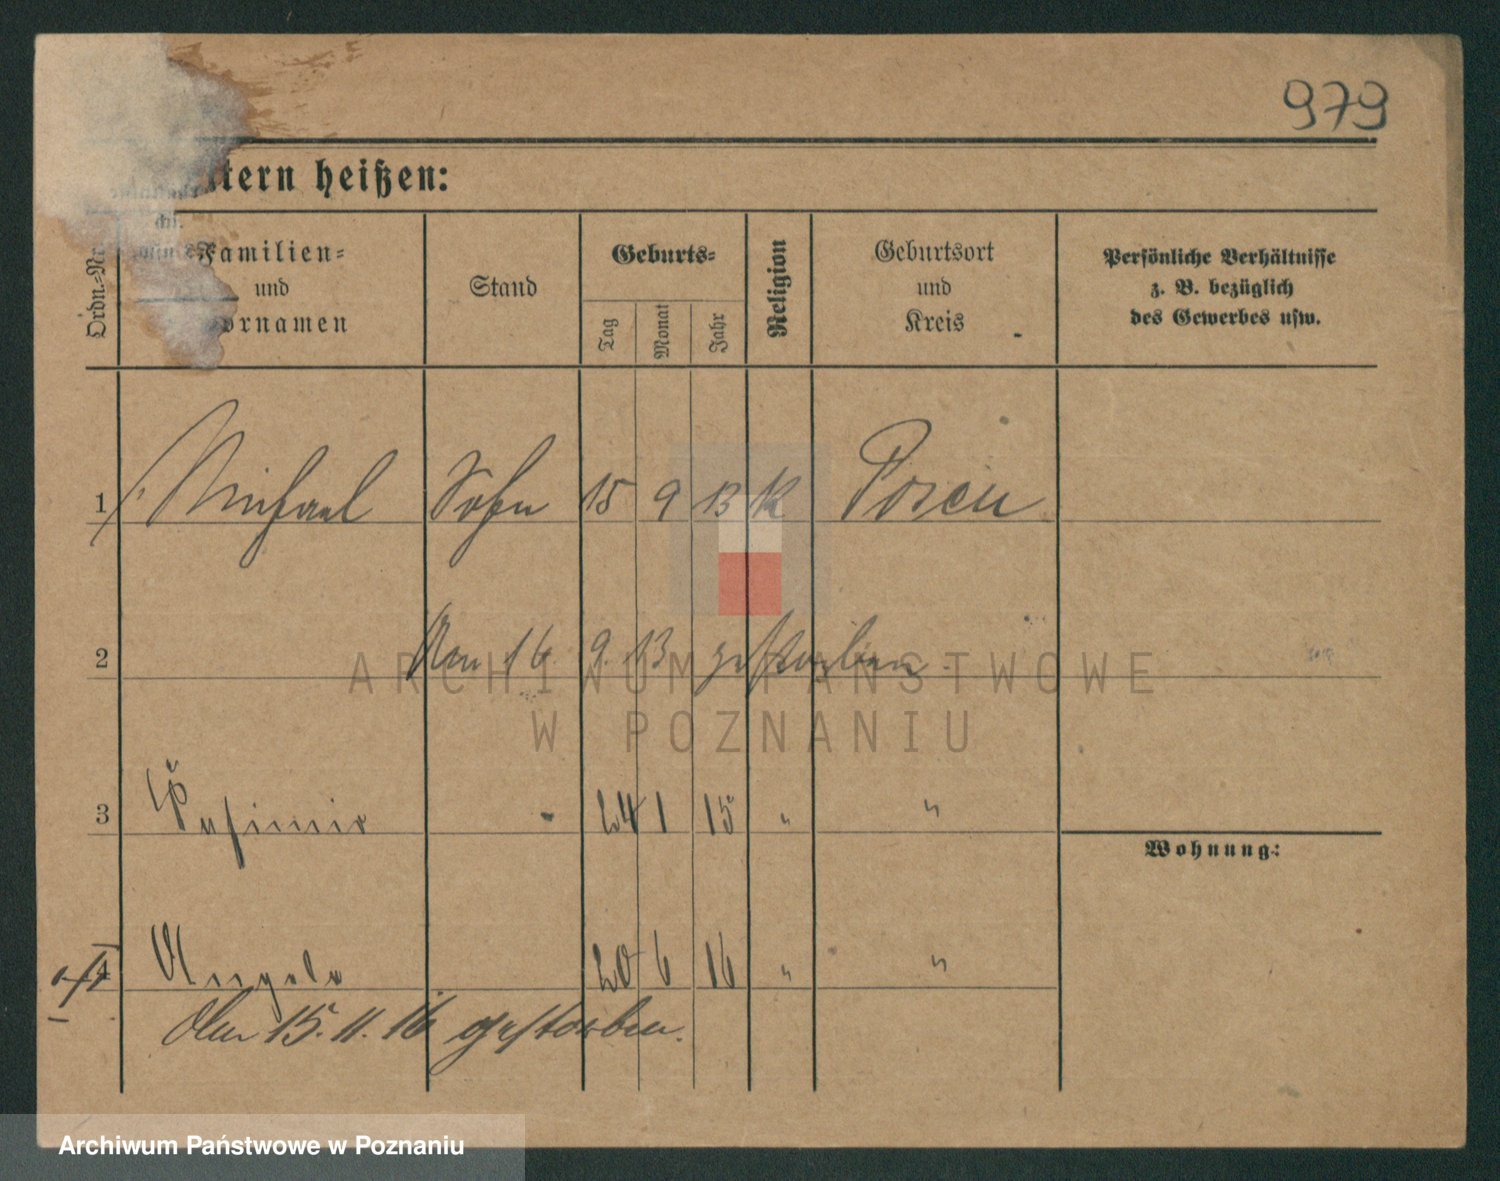 979
tern heißen:
Ordn.-Nr.
Familien-
und
Vornamen
Stand
Geburts-
Tag
Monat
Jahr
Religion
Geburtsort
und
Kreis
Persönliche Verhältnisse
z. B. bezüglich
des Gewerbes usw.
1 Michael Sohn 15 9 13 K Posen
2 Am 16. 9. 13 gestorben.
ARCHIWUM PAŃSTWOWE
W POZNANIU
3 24 1 15 " "
Wohnung:
4 Angela 20 6 16 " "
Am 15. 11. 16 gestorben.
Archiwum Państwowe w Poznaniu